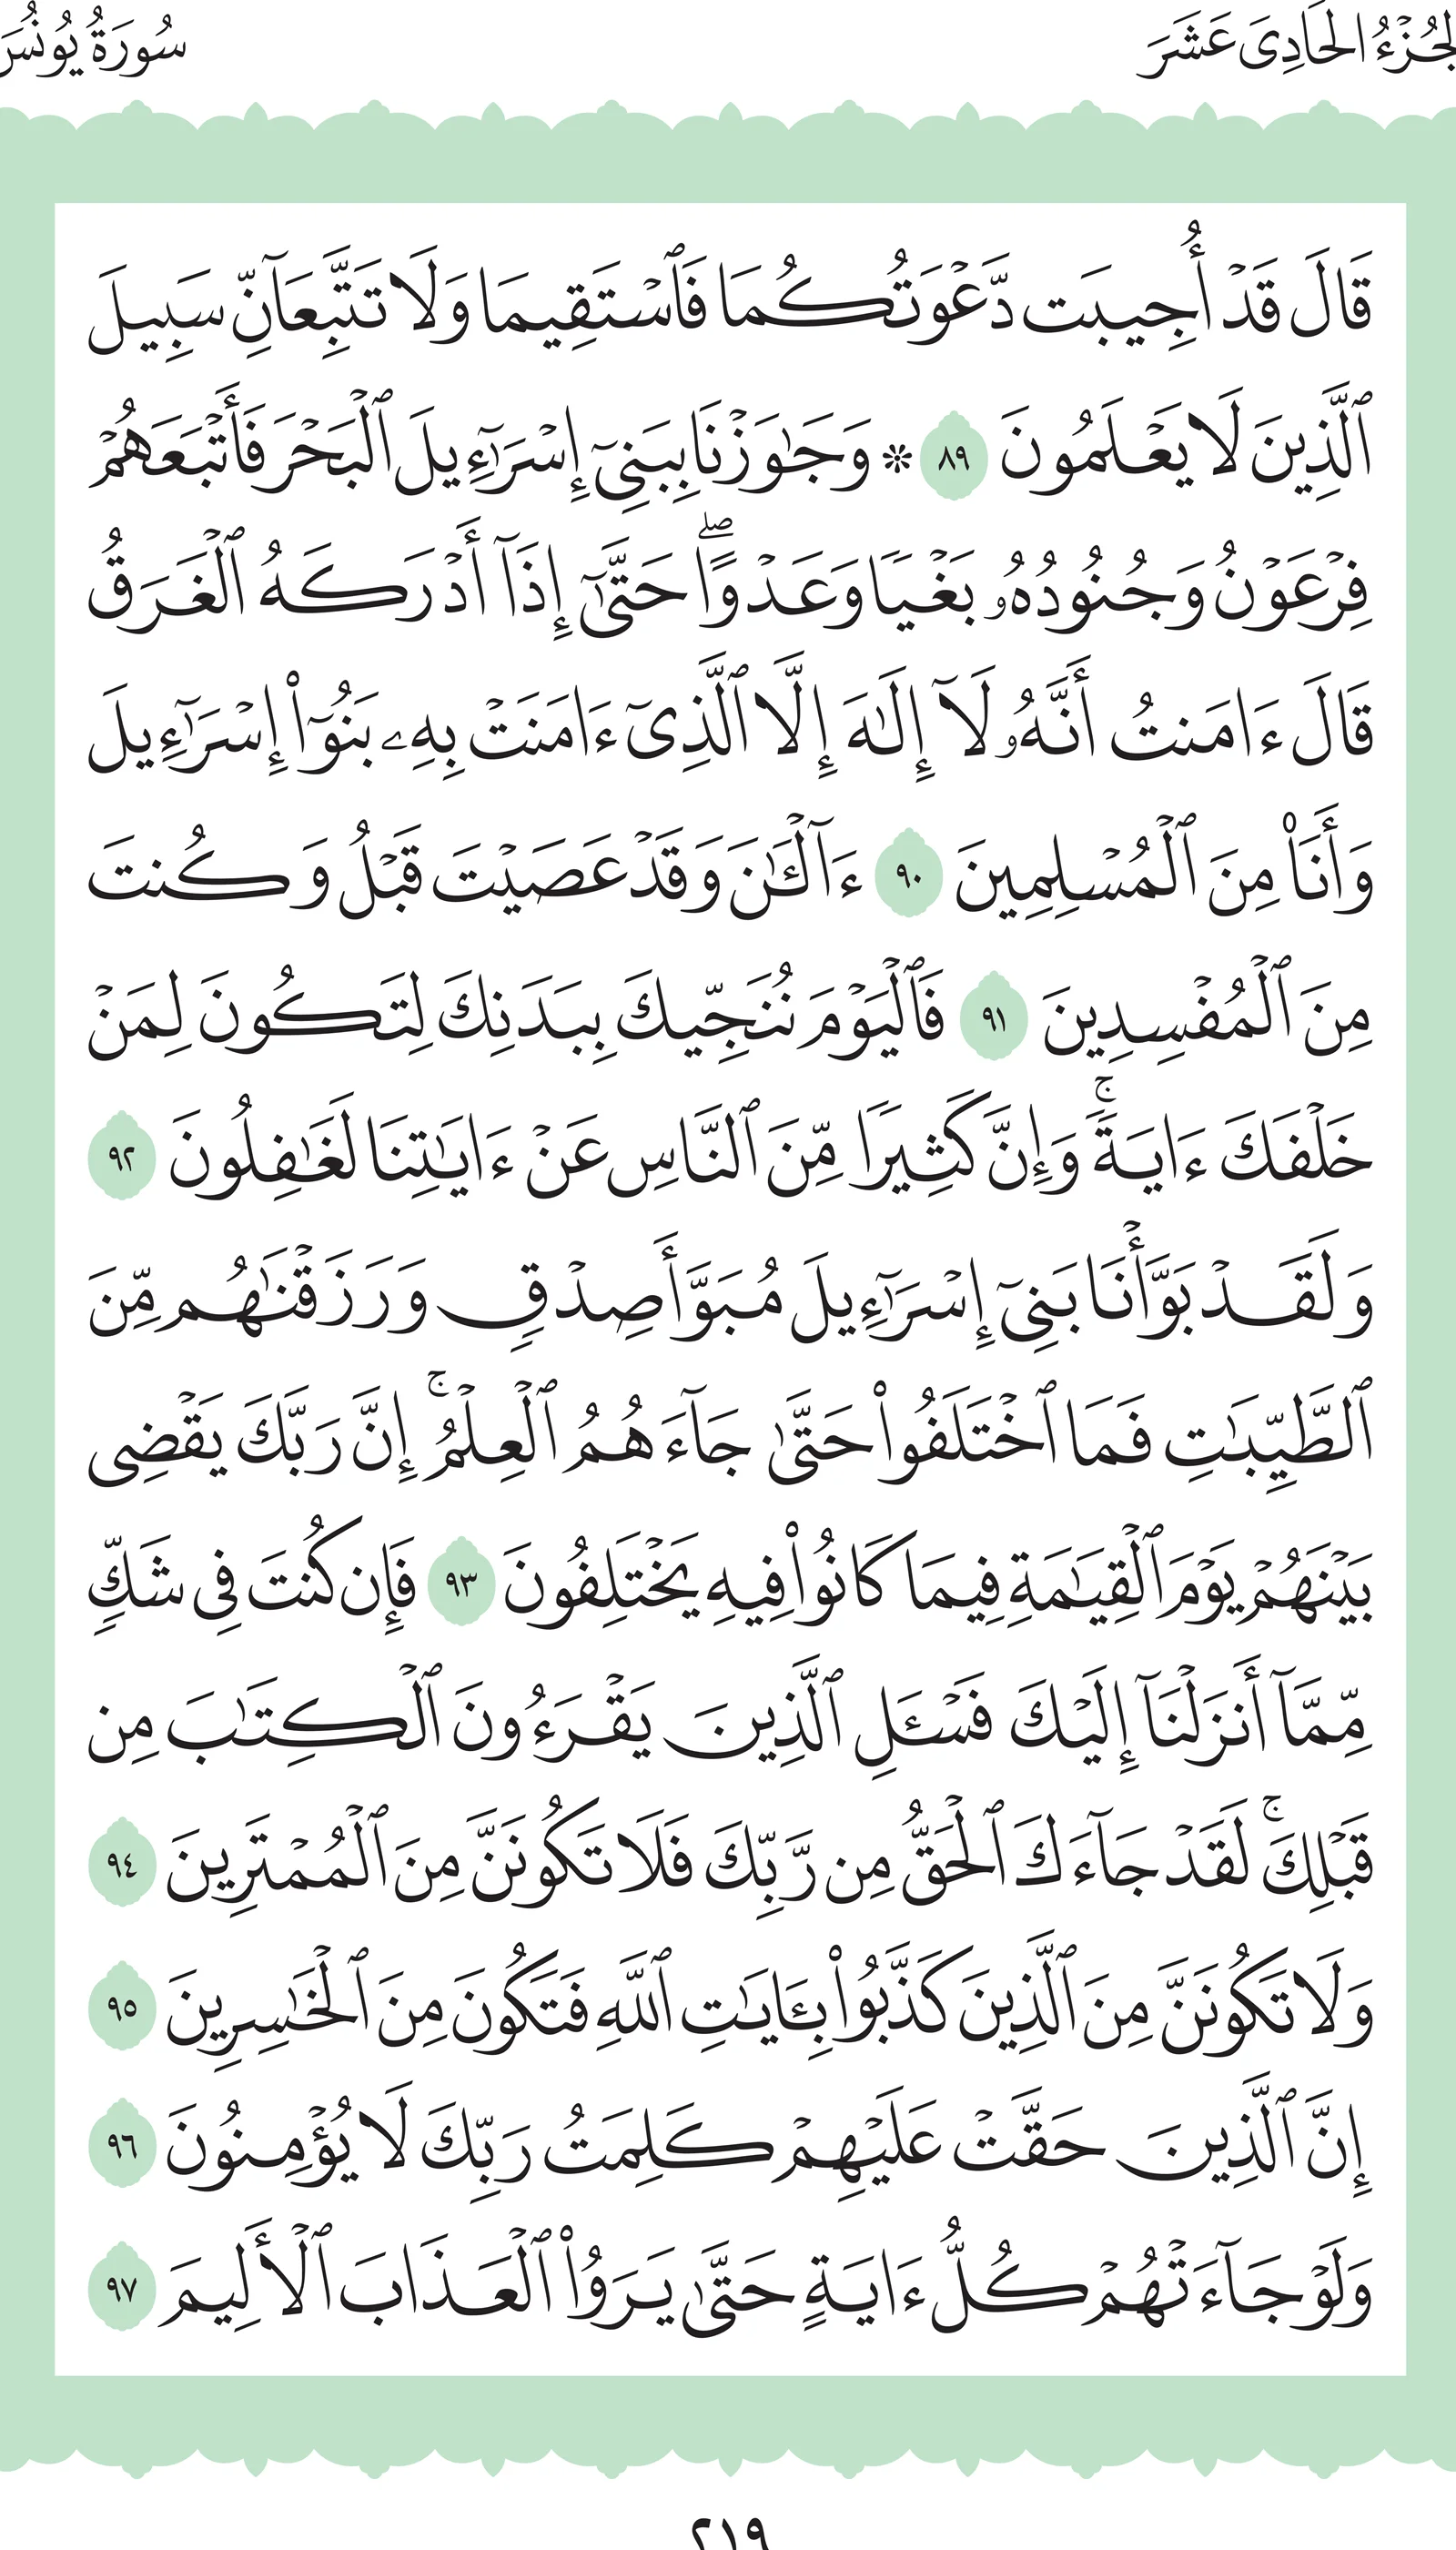 الجُزْءُ الحَادِيَ عَشَرَ
سُورَةُ يُونُسَ
قَالَ قَدۡ أُجِيبَت دَّعۡوَتُكُمَا فَٱسۡتَقِيمَا وَلَا تَتَّبِعَآنِّ سَبِيلَ
ٱلَّذِينَ لَا يَعۡلَمُونَ ٨٩ ۞ وَجَٰوَزۡنَا بِبَنِيٓ إِسۡرَٰٓءِيلَ ٱلۡبَحۡرَ فَأَتۡبَعَهُمۡ
فِرۡعَوۡنُ وَجُنُودُهُۥ بَغۡيٗا وَعَدۡوًاۖ حَتَّىٰٓ إِذَآ أَدۡرَكَهُ ٱلۡغَرَقُ
قَالَ ءَامَنتُ أَنَّهُۥ لَآ إِلَٰهَ إِلَّا ٱلَّذِيٓ ءَامَنَتۡ بِهِۦ بَنُوٓاْ إِسۡرَٰٓءِيلَ
وَأَنَا۠ مِنَ ٱلۡمُسۡلِمِينَ ٩٠ ءَآلۡـَٰٔنَ وَقَدۡ عَصَيۡتَ قَبۡلُ وَكُنتَ
مِنَ ٱلۡمُفۡسِدِينَ ٩١ فَٱلۡيَوۡمَ نُنَجِّيكَ بِبَدَنِكَ لِتَكُونَ لِمَنۡ
خَلۡفَكَ ءَايَةٗۚ وَإِنَّ كَثِيرٗا مِّنَ ٱلنَّاسِ عَنۡ ءَايَٰتِنَا لَغَٰفِلُونَ ٩٢
وَلَقَدۡ بَوَّأۡنَا بَنِيٓ إِسۡرَٰٓءِيلَ مُبَوَّأَ صِدۡقٖ وَرَزَقۡنَٰهُم مِّنَ
ٱلطَّيِّبَٰتِ فَمَا ٱخۡتَلَفُواْ حَتَّىٰ جَآءَهُمُ ٱلۡعِلۡمُۚ إِنَّ رَبَّكَ يَقۡضِي
بَيۡنَهُمۡ يَوۡمَ ٱلۡقِيَٰمَةِ فِيمَا كَانُواْ فِيهِ يَخۡتَلِفُونَ ٩٣ فَإِن كُنتَ فِي شَكّٖ
مِّمَّآ أَنزَلۡنَآ إِلَيۡكَ فَسۡـَٔلِ ٱلَّذِينَ يَقۡرَءُونَ ٱلۡكِتَٰبَ مِن
قَبۡلِكَۚ لَقَدۡ جَآءَكَ ٱلۡحَقُّ مِن رَّبِّكَ فَلَا تَكُونَنَّ مِنَ ٱلۡمُمۡتَرِينَ ٩٤
وَلَا تَكُونَنَّ مِنَ ٱلَّذِينَ كَذَّبُواْ بِـَٔايَٰتِ ٱللَّهِ فَتَكُونَ مِنَ ٱلۡخَٰسِرِينَ ٩٥
إِنَّ ٱلَّذِينَ حَقَّتۡ عَلَيۡهِمۡ كَلِمَتُ رَبِّكَ لَا يُؤۡمِنُونَ ٩٦
وَلَوۡ جَآءَتۡهُمۡ كُلُّ ءَايَةٍ حَتَّىٰ يَرَوُاْ ٱلۡعَذَابَ ٱلۡأَلِيمَ ٩٧
٢١٩